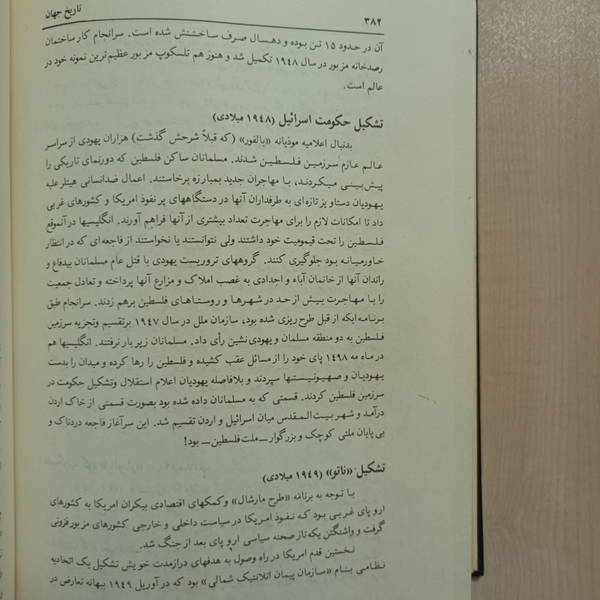 ۳۸۲ تاریخ جهان
آن در حدود ۱۵ تن بوده و دهسال صرف ساختنش شده است. سرانجام کار ساختمان
رصدخانه مزبور در سال ۱۹۴۸ تکمیل شد و هنوز هم تلسکوپ مزبور عظیم‌ترین نمونه خود در
عالم است.
تشکیل حکومت اسرائیل (۱۹۴۸ میلادی)
بدنبال اعلامیه موذیانه «بالفور» (که قبلاً شرحش گذشت) هزاران یهودی از سراسر
عالم عازم سرزمین فلسطین شدند. مسلمانان ساکن فلسطین که دورنمای تاریکی را
پیش‌بینی میکردند، با مهاجران جدید بمبارزه برخاستند. اعمال ضدانسانی هیتلر علیه
یهودیان دستاویز تازه‌ای به طرفداران آنها در دستگاههای پر نفوذ امریکا و کشورهای غربی
داد تا امکانات لازم را برای مهاجرت تعداد بیشتری از آنها فراهم آورند. انگلیسها در آنموقع
فلسطین را تحت قیمومیت خود داشتند ولی نتوانستند یا نخواستند از فاجعه‌ای که در انتظار
خاورمیانه بود جلوگیری کنند. گروههای تروریست یهودی با قتل عام مسلمانان بیدفاع و
راندن آنها از خانمان آباء و اجدادی به غصب املاک و مزارع آنها پرداخته و تعادل جمعیت
را با مهاجرت بیش از حد در شهرها و روستاهای فلسطین برهم زدند. سرانجام طبق
برنامه‌ایکه از قبل طرح‌ریزی شده بود، سازمان ملل در سال ۱۹۴۷ بر تقسیم وتجزیه سرزمین
فلسطین به دو منطقه مسلمان و یهودی نشین رأی داد. مسلمانان زیر بار نرفتند. انگلیسیها هم
در ماه مه ۱۴۹۸ پای خود را از مسائل عقب کشیده و فلسطین را رها کرده و میدان را بدست
یهودیان و صهیونیستها سپردند و بلافاصله یهودیان اعلام استقلال وتشکیل حکومت در
سرزمین فلسطین کردند. قسمتی که به مسلمانان داده شده بود بصورت قسمتی از خاک اردن
درآمد و شهر بیت‌المقدس میان اسرائیل و اردن تقسیم شد. این سرآغاز فاجعه دردناک و
بی‌پایان ملتی کوچک و بزرگوار ــ ملت فلسطین ــ بود!
تشکیل «ناتو» (۱۹۴۹ میلادی)
با توجه به برنامه «طرح مارشال» وکمکهای اقتصادی بیکران امریکا به کشورهای
اروپای غربی بود که نفوذ امریکا در سیاست داخلی و خارجی کشورهای مزبور فزونی
گرفت و واشنگتن یکه‌تاز صحنه سیاسی اروپای بعد از جنگ شد.
نخستین قدم امریکا در راه وصول به هدفهای درازمدت خویش تشکیل یک اتحادیه
نظامی بنام «سازمان پیمان اتلانتیک شمالی» بود که در آوریل ۱۹۴۹ ببهانه تعارض در